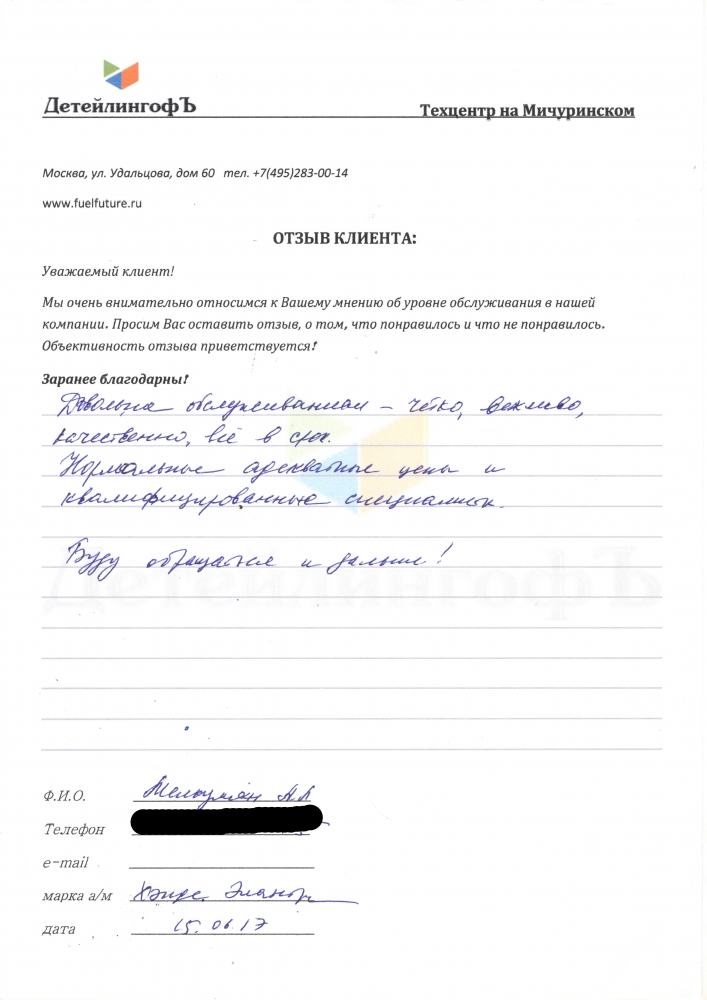 ДетейлингофЪ
Техцентр на Мичуринском
Москва, ул. Удальцова, дом 60 тел. +7(495)283-00-14
www.fuelfuture.ru
ОТЗЫВ КЛИЕНТА:
Уважаемый клиент!
Мы очень внимательно относимся к Вашему мнению об уровне обслуживания в нашей
компании. Просим Вас оставить отзыв, о том, что понравилось и что не понравилось.
Объективность отзыва приветствуется!
Заранее благодарны!
Довольна обслуживанием – чётко, вежливо,
качественно, всё в срок.
Нормальные адекватные цены и
квалифицированные специалисты.
Буду обращаться и дальше!
ДетейлингофЪ
Ф.И.О. Мелкумян А.А
Телефон
e-mail
марка а/м Хэндэ Элантра
дата 15.06.17